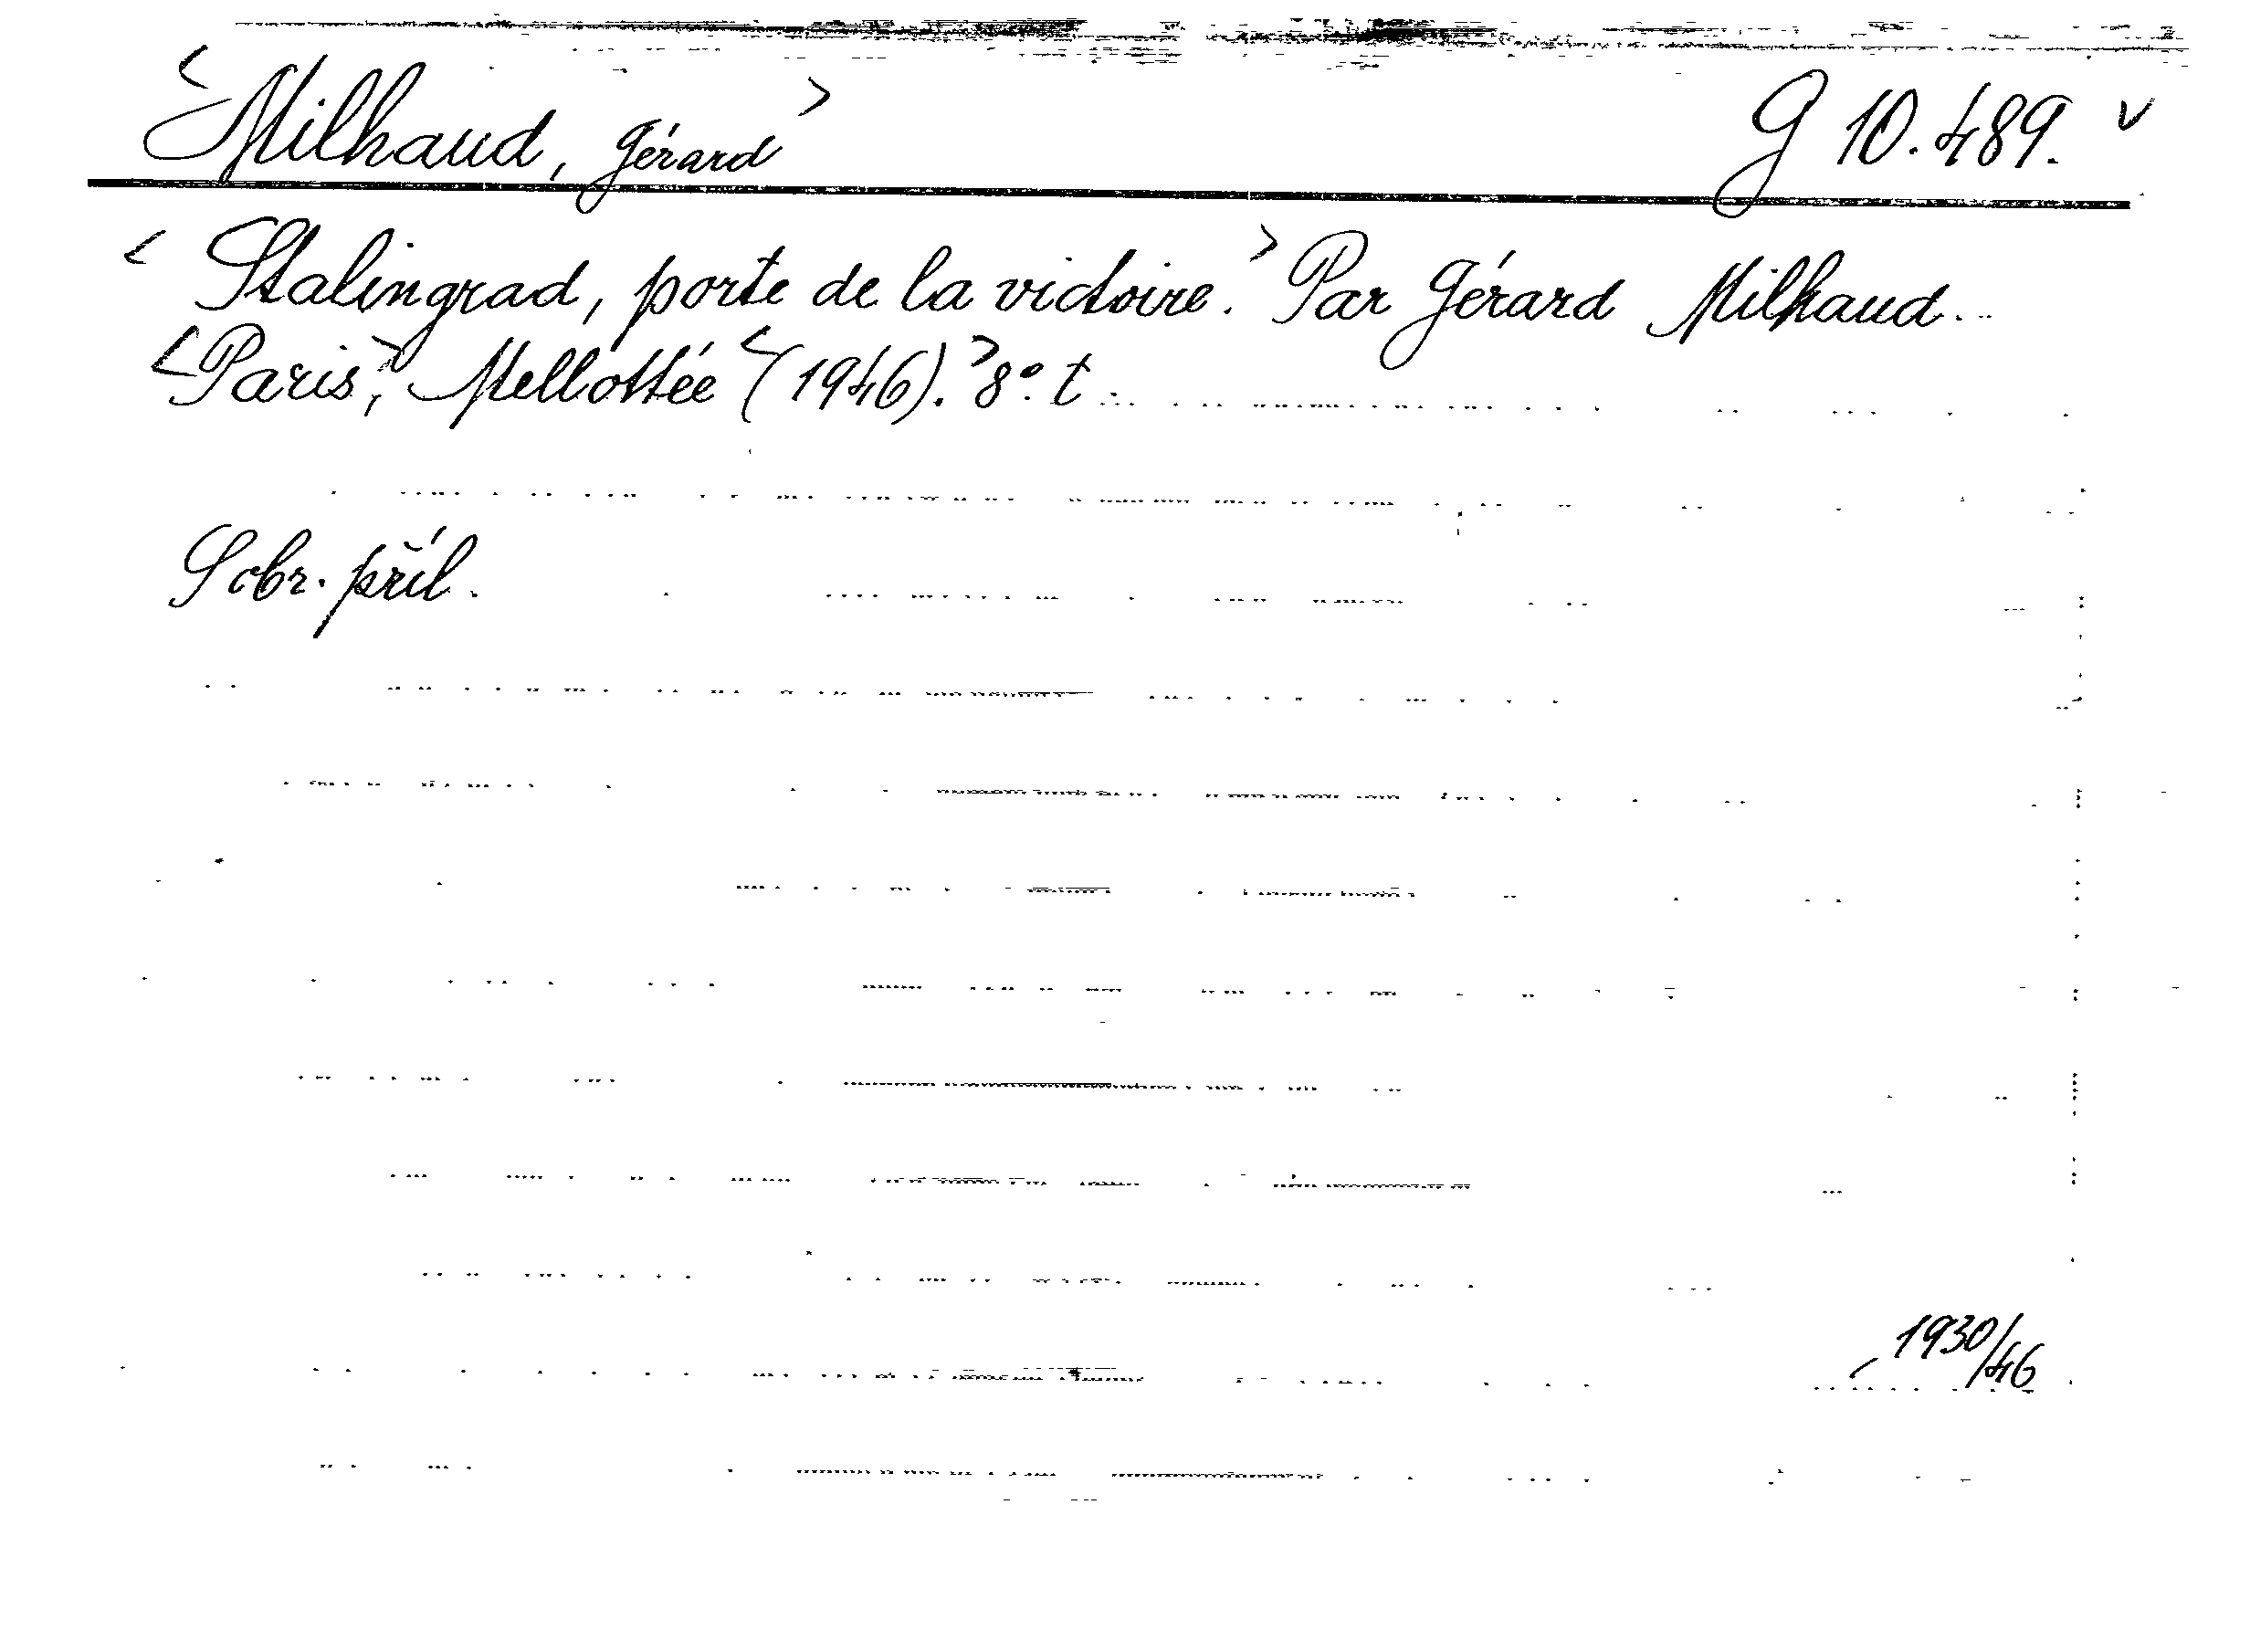 <Milhaud, Gérard> G 10.489. v
<Stalingrad, porte de la victoire.> Par Gérard Milhaud.
<Paris,> Mellottée <(1946).> 8°. t.
S obr. příl.
1930/46